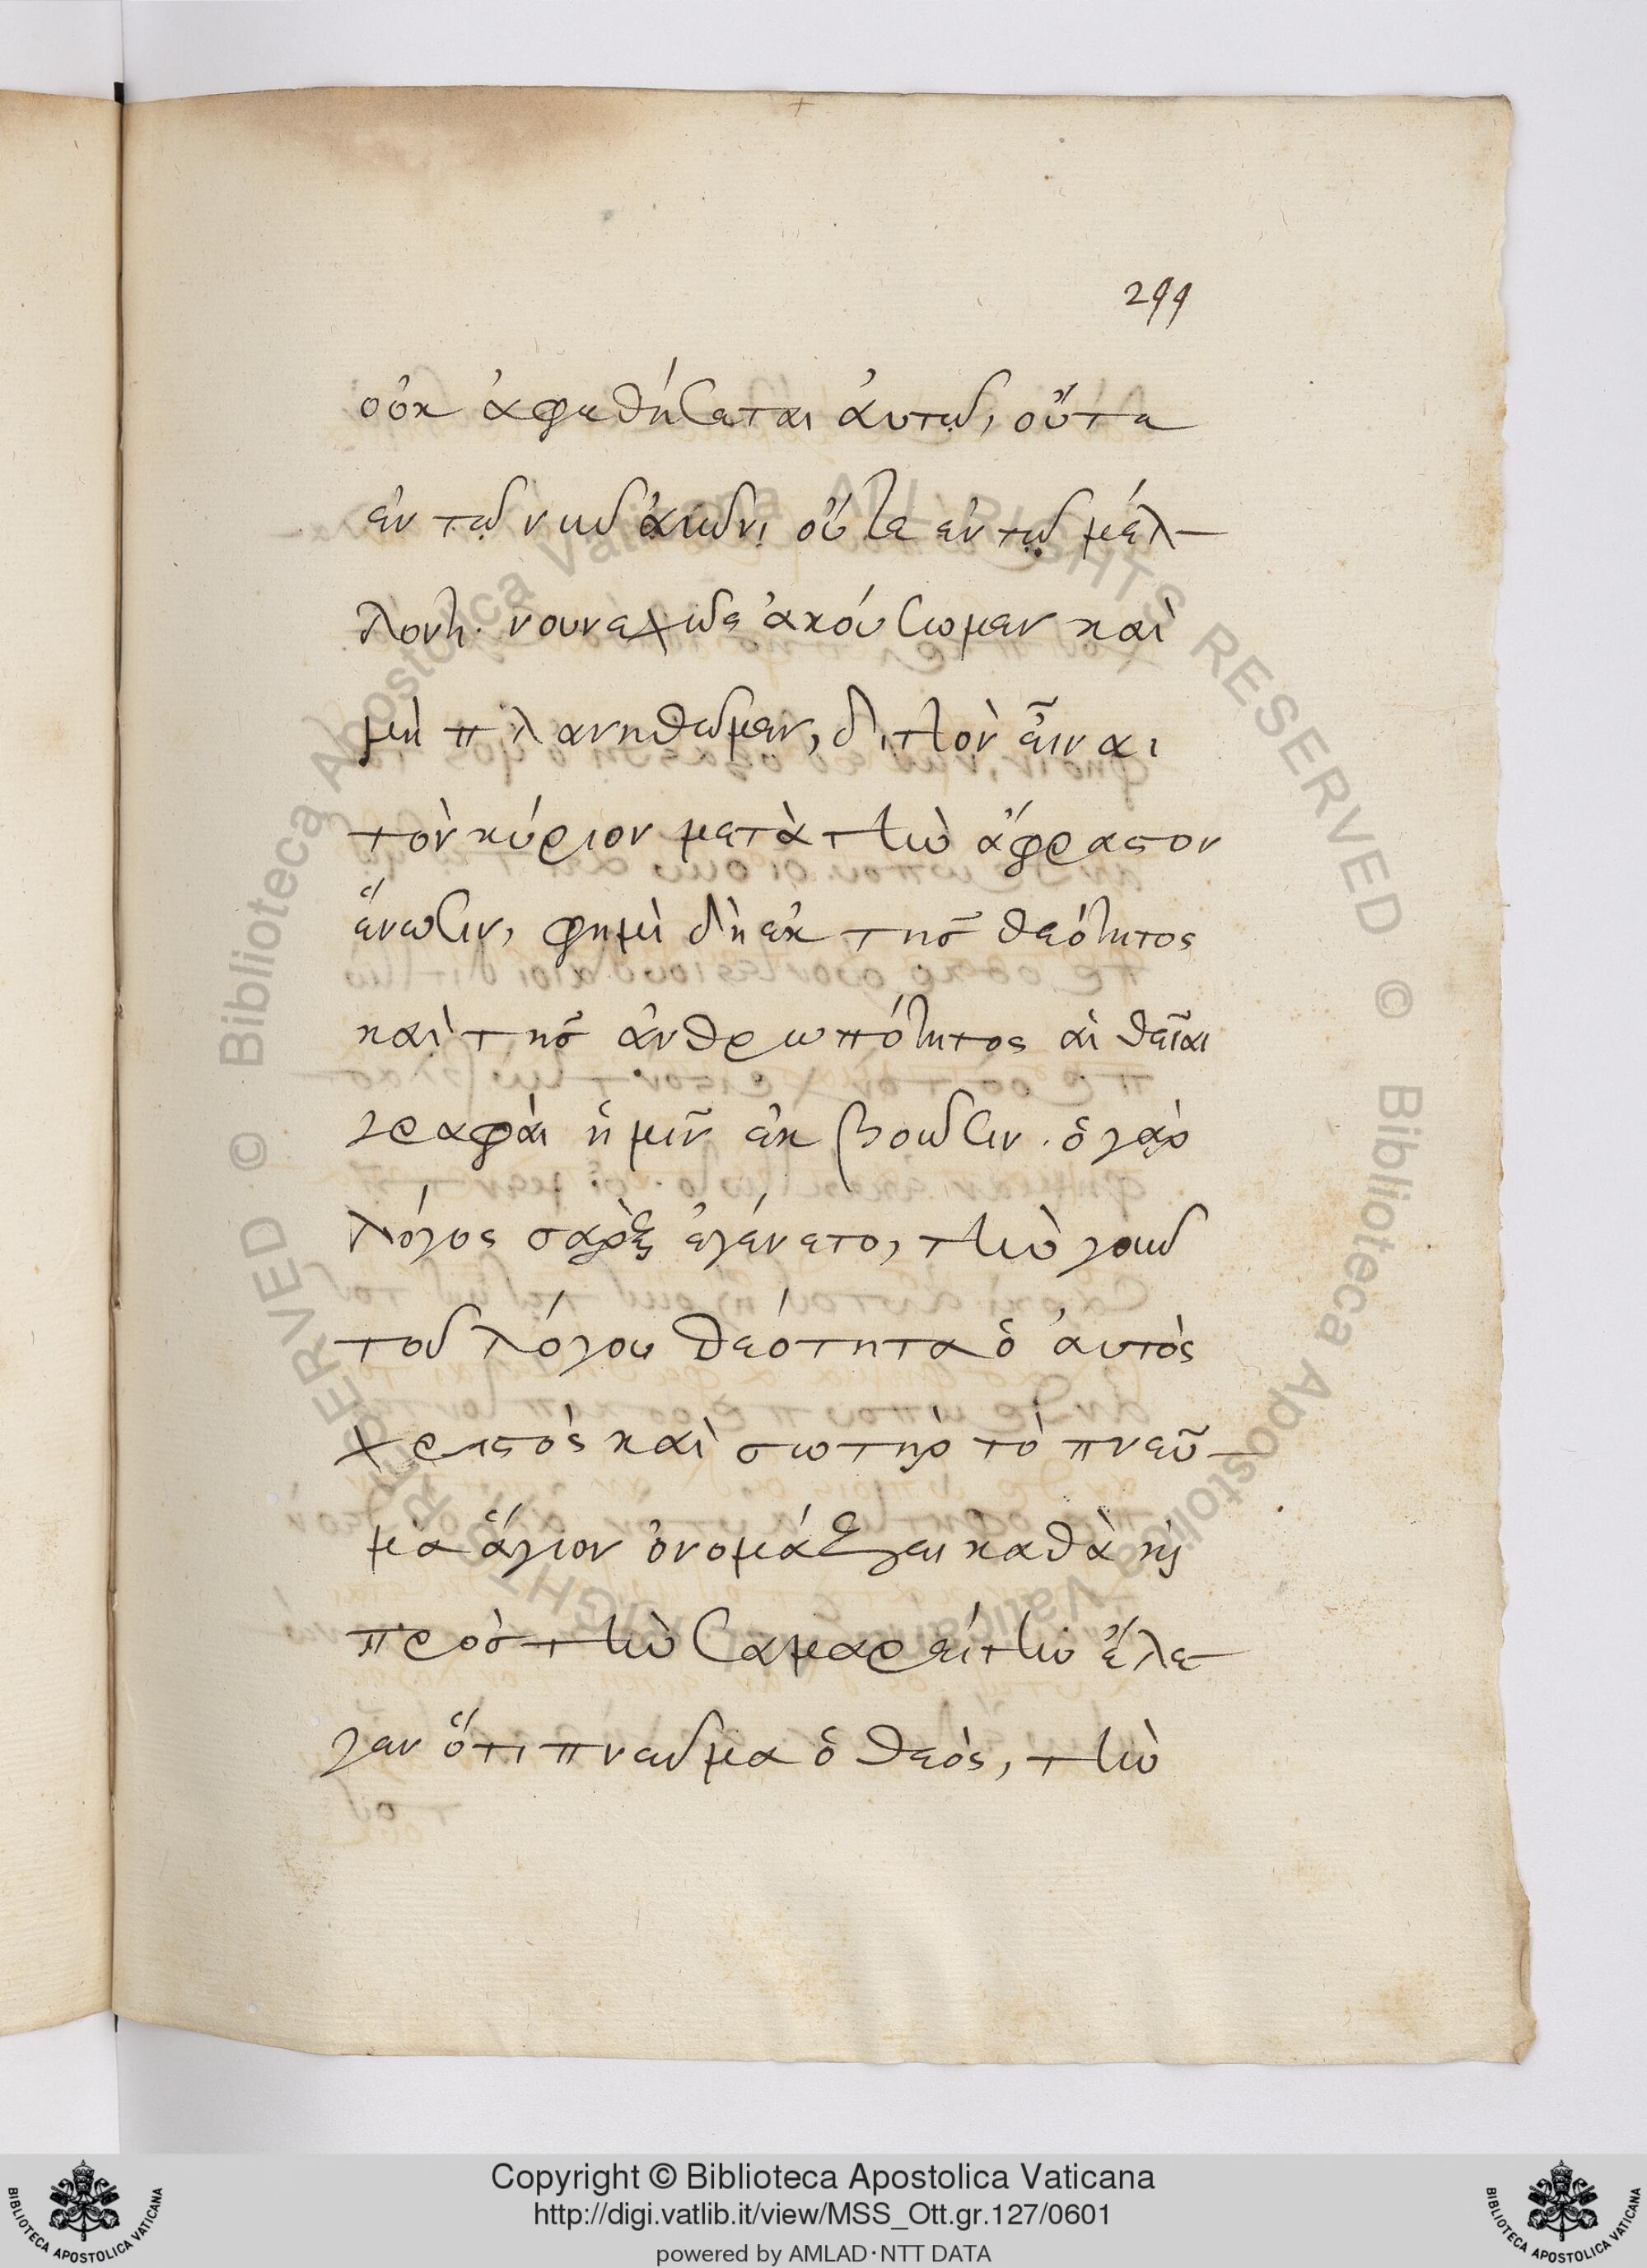 299
οὐκ ἀφεθήσεται ἀυτῶ, οὔτε
ἐν τῶ νῦν ἀιῶνι οὔτε ἐν τῶ μέλ-
λοντι. νουνεχῶς ἀκούσωμεν καὶ
μὴ πλανηθῶμεν, διττὸν εἶναι
τὸν κύριον μετὰ τὴν ἄφραστον
ἕνωσιν, φημὶ δὴ ἐκ τῆς θεότητος
καὶ τῆς ἀνθρωπότητος αἱ θεῖαι
γραφαὶ ἡμῖν ἐκβοῶσιν. ὁ γὰρ
λόγος σὰρξ ἐγένετο, τὴν γοῦν
τοῦ λόγου θεότητα ὁ ἀυτὸς
χριστὸς καὶ σωτὴρ τὸ πνεῦ-
μα ἅγιον ὀνομάζει καθὰ κὶ
πρὸς τὴν Σαμαρείτιν ἔλε-
γεν ὅτι πνεῦμα ὁ θεὸς, τὴν
Biblioteca Apostolica Vaticana ALL RIGHTS RESERVED ©
Biblioteca Apostolica Vaticana ALL RIGHTS RESERVED ©
Copyright © Biblioteca Apostolica Vaticana
http://digi.vatlib.it/view/MSS_Ott.gr.127/0601
powered by AMLAD·NTT DATA
BIBLIOTECA APOSTOLICA VATICANA
BIBLIOTECA APOSTOLICA VATICANA